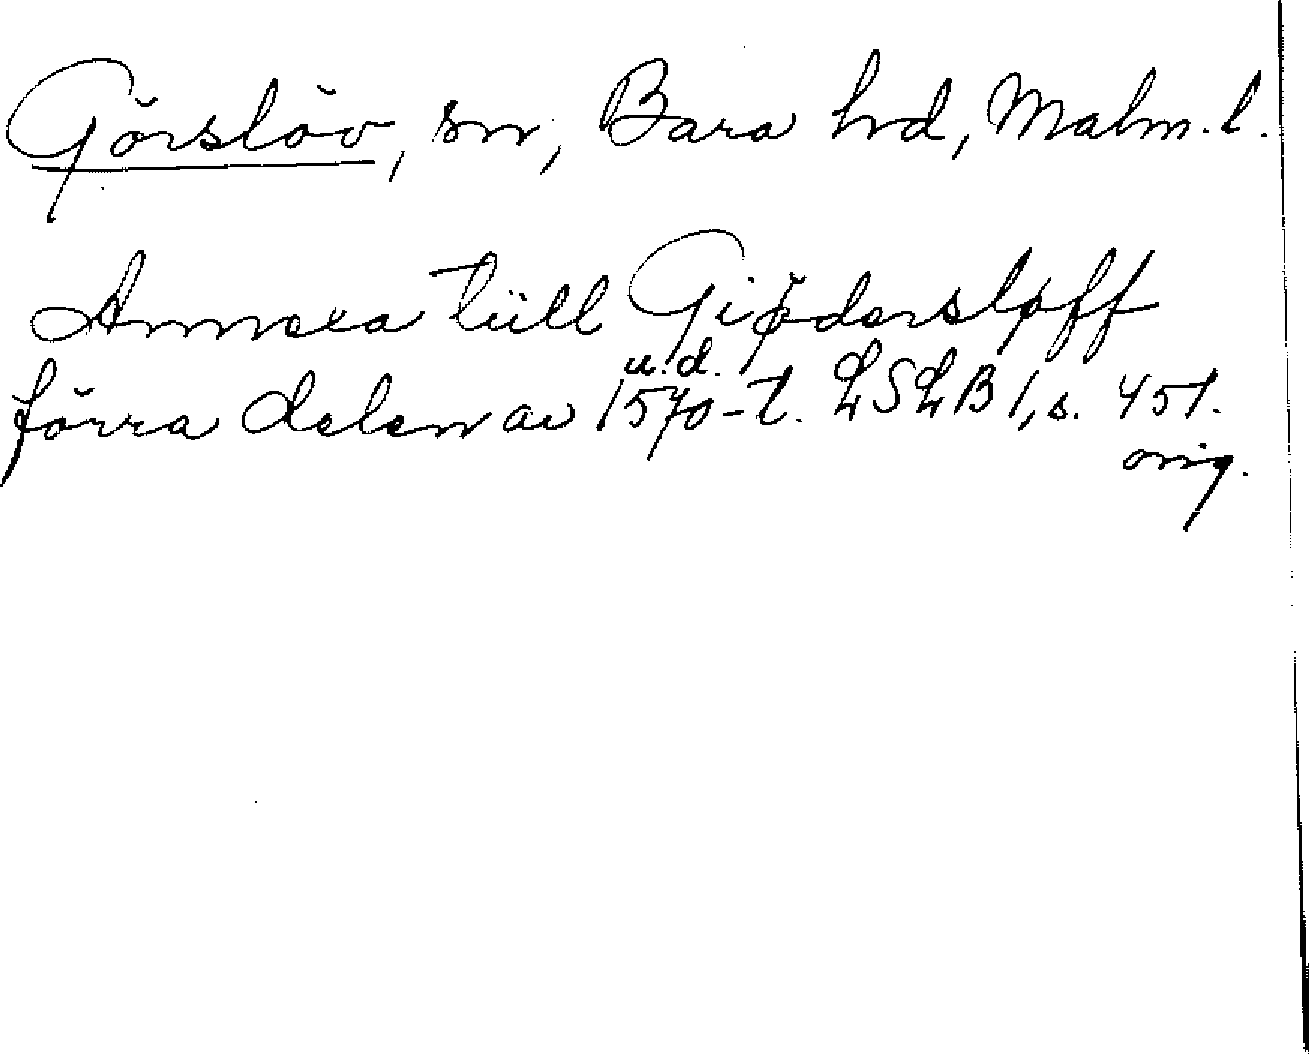 Görslöv, sn, Bara hrd, Malm. l.
Annexa tiill Giødersløff
u. d.
förra delen av 1570-t. LSLB 1, s. 451.
orig.